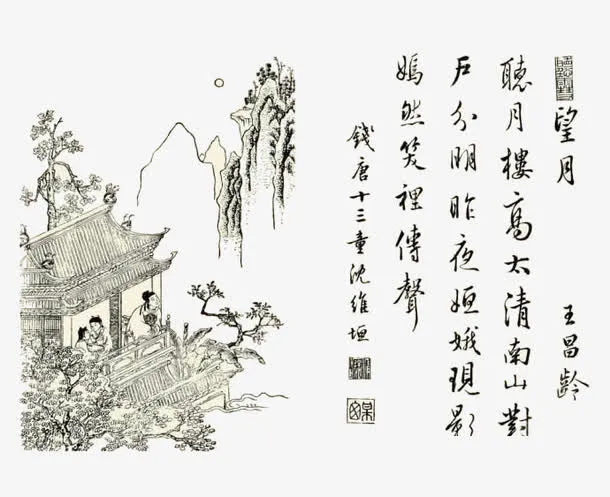 望月
王昌齡
聽月樓高太清南山對
戶分明昨夜姮娥現影
嫣然笑裡傳聲
錢唐十三童沈維垣